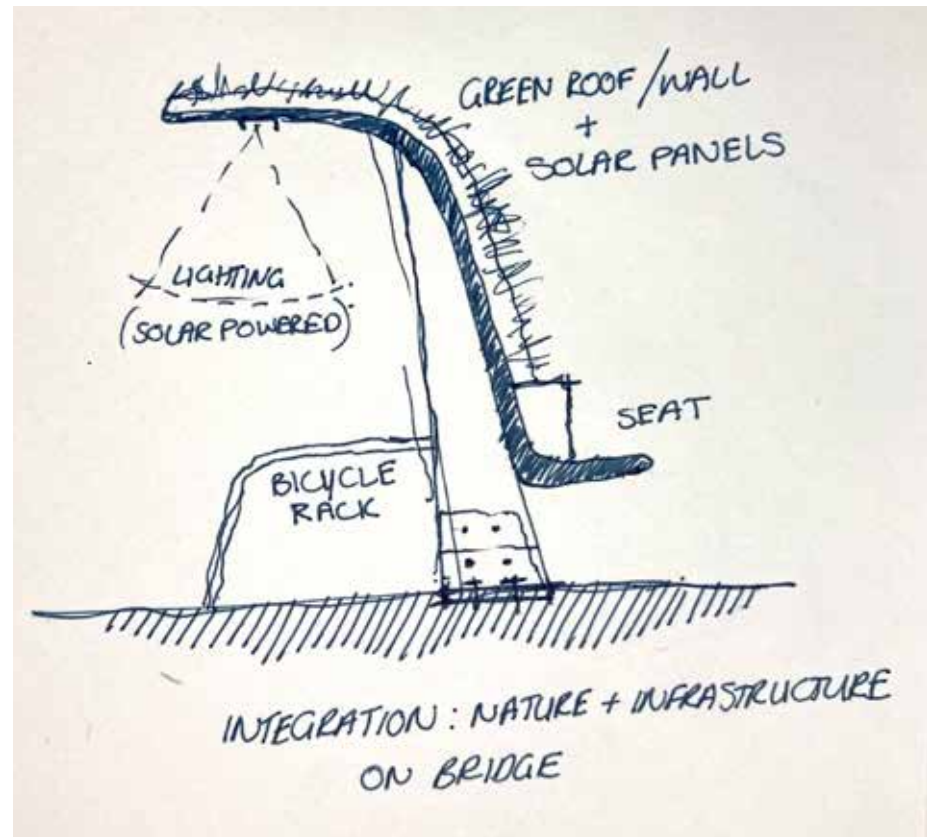 GREEN ROOF/WALL
+
SOLAR PANELS
LIGHTING
(SOLAR POWERED)
SEAT
BICYCLE
RACK
INTEGRATION: NATURE + INFRASTRUCTURE
ON BRIDGE